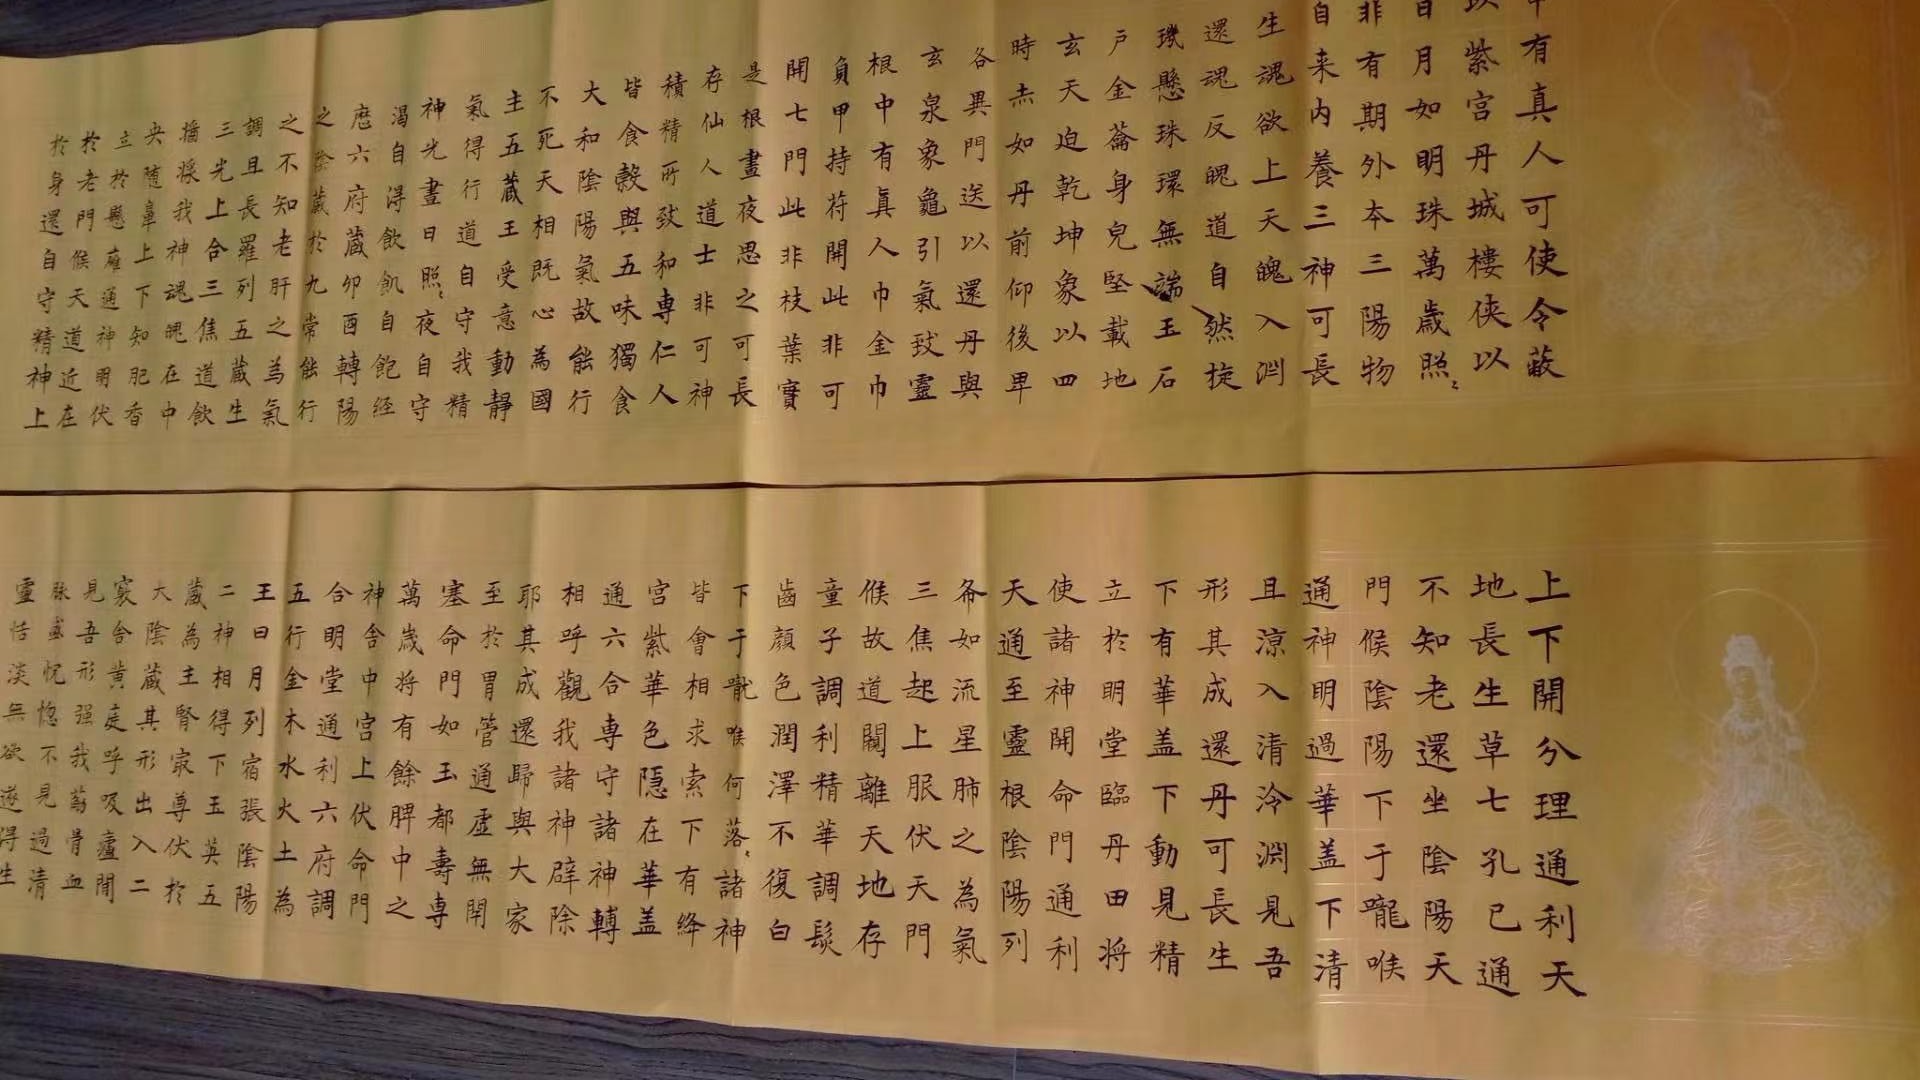 中有真人可使令蔽
以紫宮丹城樓俠以
日月如明珠萬歲照〻
非有期外本三陽物
自来內養三神可長
生魂欲上天魄入淵
還魂反魄道自然㧞
璣懸珠環無端玉石
户金蘥身皃堅載地
玄天迫乾坤象以四
時赤如丹前仰後卑
各異門送以還丹與
玄泉象龜引氣致靈
根中有真人巾金巾
負甲持符開此非可
開七門此非枝葉實
是根晝夜思之可長
存仙人道士非可神
積精所致和専仁人
皆食榖與五味獨食
大和陰陽氣故能行
不死天相既心為國
主五藏王受意動靜
氣得行道自守我精
神光晝日照〻夜自守
渴自得飲飢自飽経
歴六府藏卯酉轉陽
之陰藏於九常能行
之不知老肝之為氣
調且長羅列五藏生
三光上合三焦道飲
槳將我神魂魄在中
央随鼻上下知肥香
立於懸廱通神明伏
於老門候天道近在
於身還自守精神上
上下開分理通利天
地長生草七孔已通
不知老還坐陰陽天
門候陰陽下于嚨喉
通神明過華盖下清
且涼入清泠淵見吾
形其成還丹可長生
下有華盖下動見精
立於明堂臨丹田将
使諸神開命門通利
天通至靈根陰陽列
布如流星肺之為氣
三焦起上服伏天門
候故道闚離天地存
童子調利精華調髮
齒顏色潤澤不復白
下于嚨喉何落〻諸神
皆會相求索下有絳
宮紫華色隱在華盖
通六合専守諸神轉
相呼觀我諸神辟除
耶其成還歸與大家
至於胃管通虛無閉
塞命門如玉都壽専
萬歲将有餘脾中之
神舍中宮上伏命門
合明堂通利六府調
五行金木水火土為
王日月列宿張陰陽
二神相得下玉英五
藏為主腎冣尊伏於
大陰藏其形出入二
竅舍黄庭呼吸廬間
見吾形强我莭骨血
脉盛怳惚不見過清
靈恬淡無欲遂得生